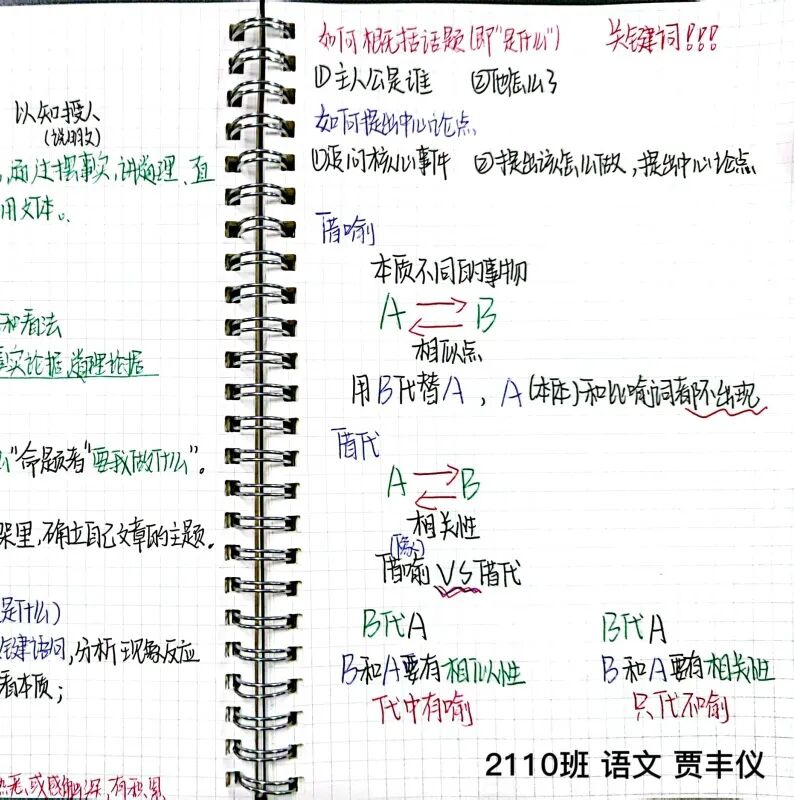 以知授人
(说明文)
,通过摆事实,讲道理、直
用文体。
和看法
事实论据,道理论据
"命题者"要我做什么"。
架里,确立自己文章的主题。
是什么)
关键词,分析现象反应
看本质;
或感触深,有积累
如何概括话题(即"是什么") 关键词!!!
①主人公是谁 ②他怎么了
如何提出中心论点
①追问核心事件 ②提出该怎么做,提出中心论点
借喻
本质不同的事物
A B
相似点
用B代替A,A(本体)和比喻词都不出现
借代
A B
相关性
借喻 VS 借代
B代A B代A
B和A要有相似性 B和A要有相关性
代中有喻 只代不喻
2110班 语文 贾丰仪